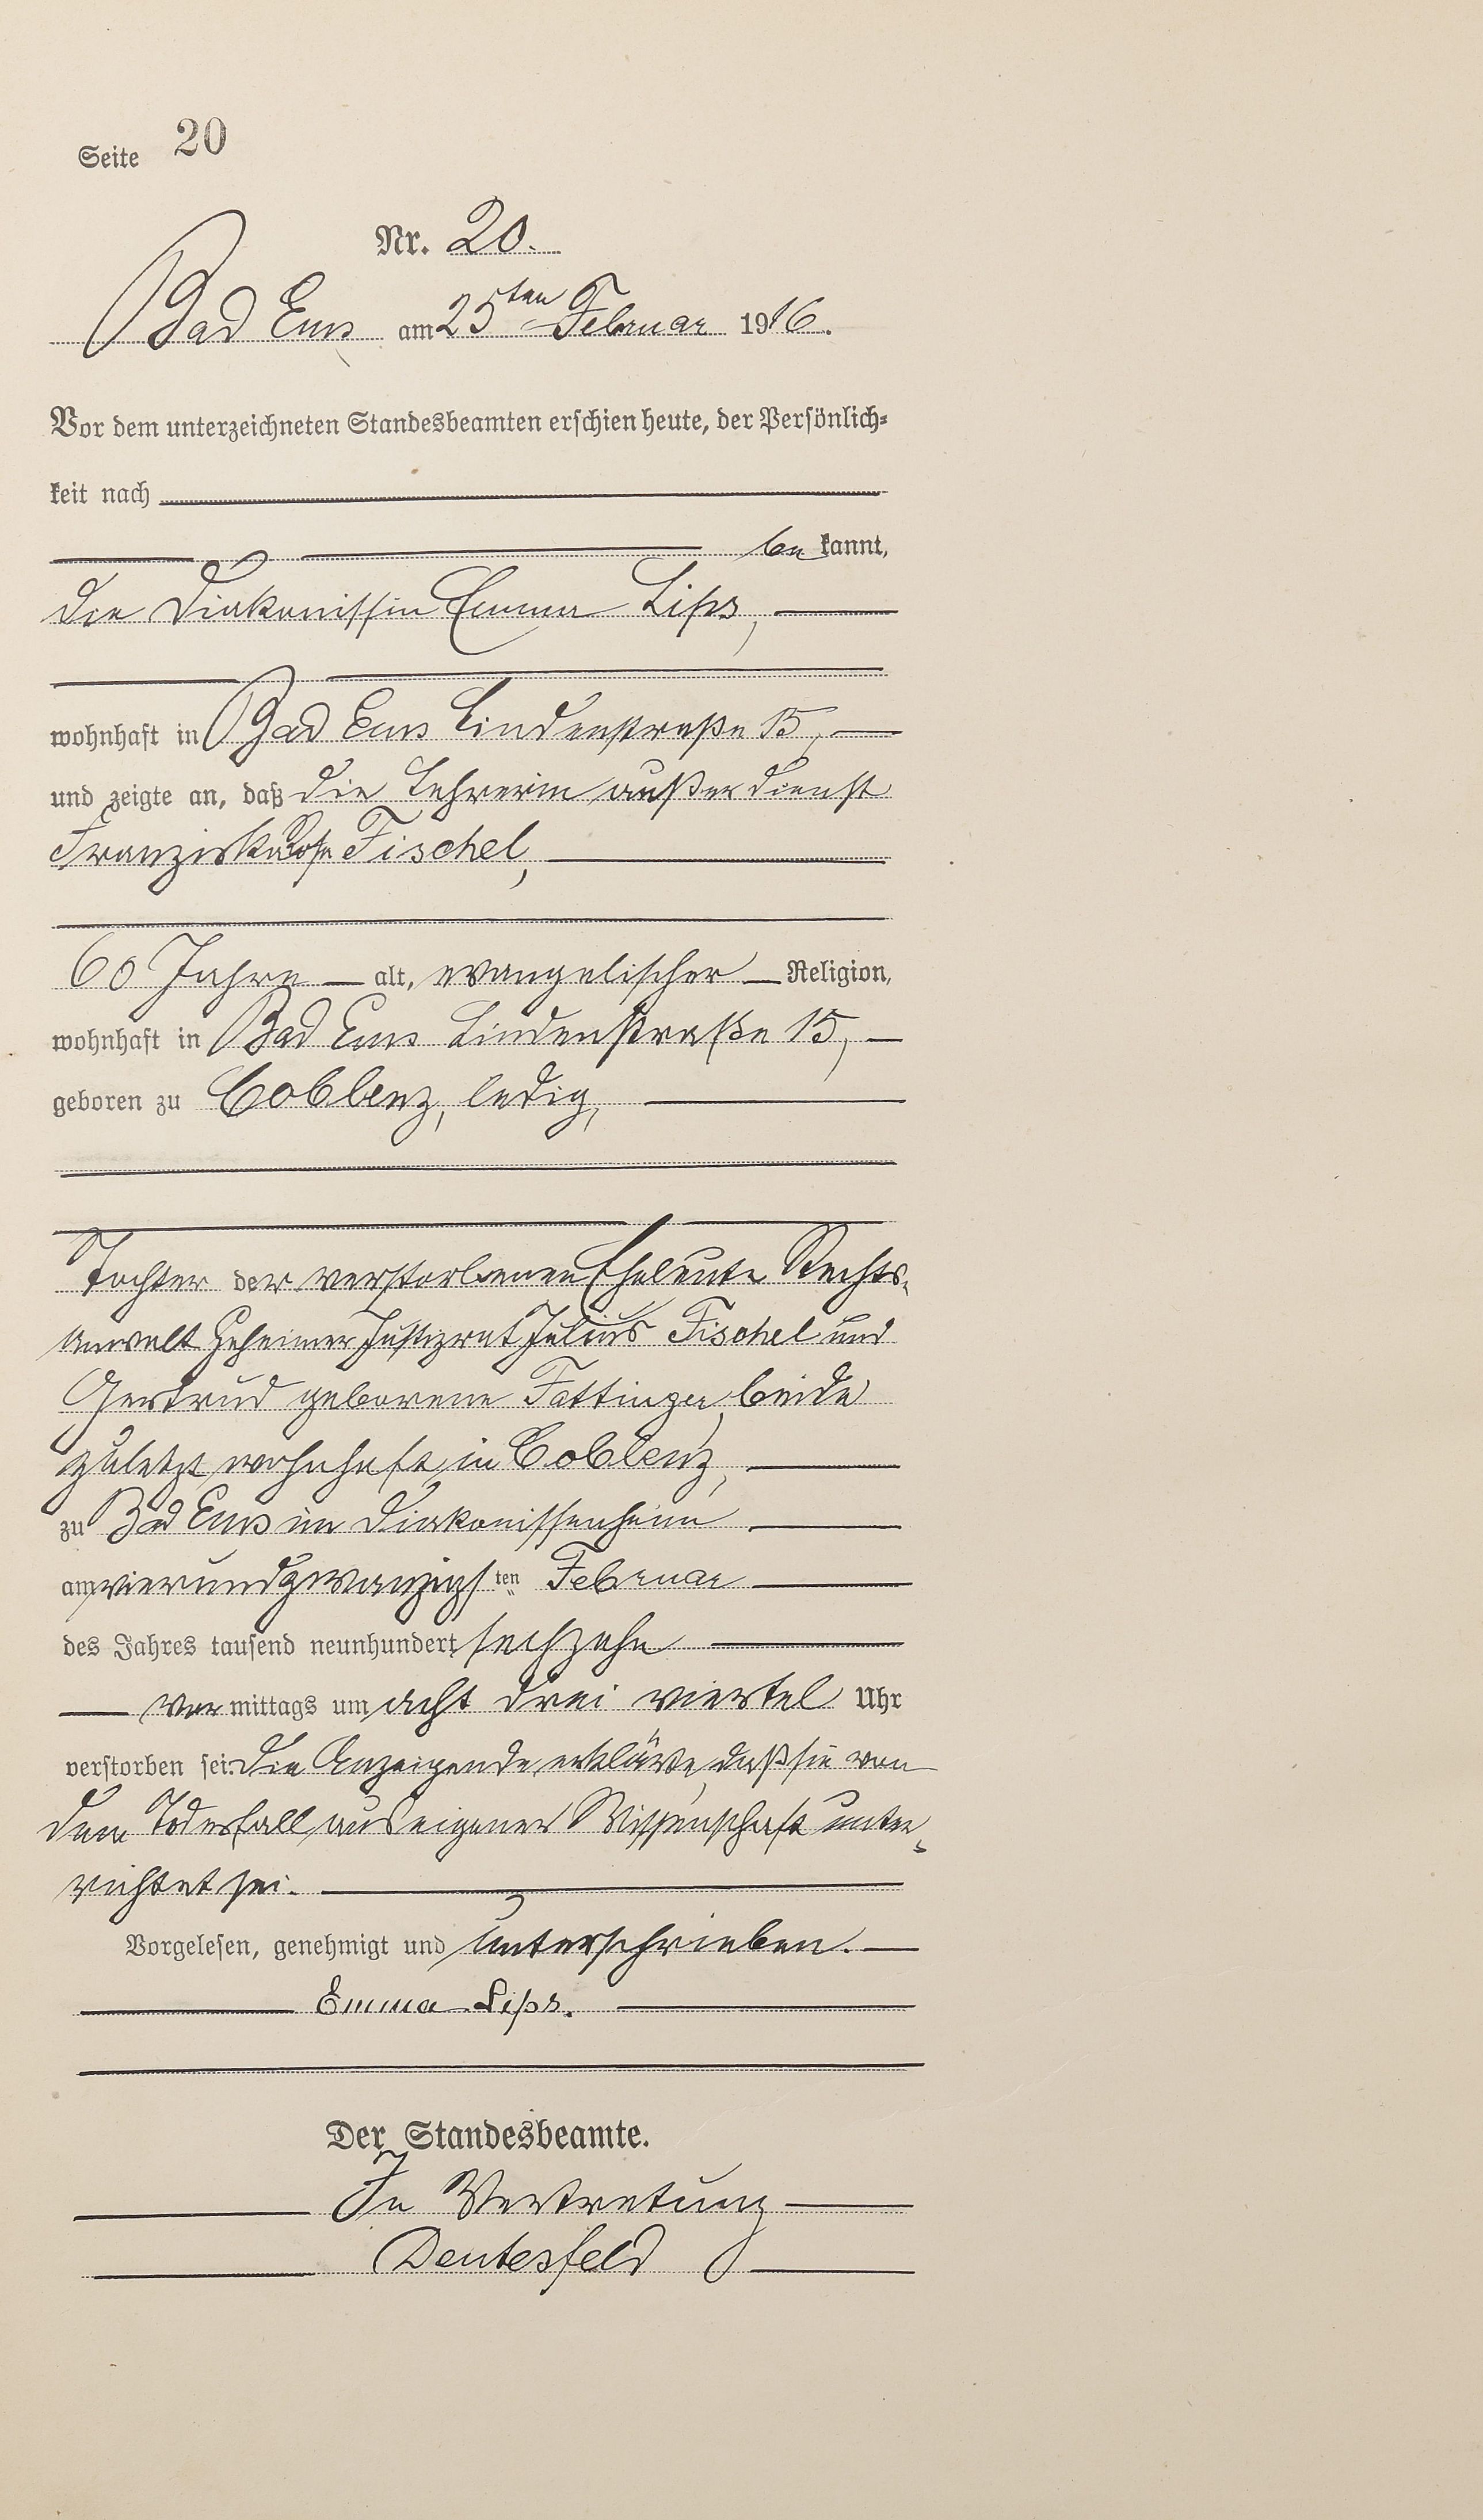 Seite 20
Nr. 20.
Bad Ems am 25ten Februar 1916.
Vor dem unterzeichneten Standesbeamten erschien heute, der Persönlich-
keit nach
be kannt,
die Diakonissin Emma Lips,
wohnhaft in Bad Ems Lindenstraße 15,
und zeigte an, daß die Lehrerin außer Dienst
Franziska Rosa Fischel,
60 Jahre alt, evangelischer Religion,
wohnhaft in Bad Ems Lindenstraße 15,
geboren zu Coblenz, ledig,
Tochter der verstorbenen Eheleute Rechts-
anwalt Geheimer Justizrat Julius Fischel und
Gertrud geborene Fattinger, beide
zuletzt wohnhaft in Coblenz,
zu Bad Ems im Diakonissenheim
am vierundzwanzigsten Februar
des Jahres tausend neunhundert sechzehn
vor mittags um acht drei viertel Uhr
verstorben sei. Die Anzeigende erklärte, daß sie von
dem Todesfall aus eigener Wissenschaft unter-
richtet sei.
Vorgelesen, genehmigt und unterschrieben.
Emma Lips.
Der Standesbeamte.
In Vertretung
Deutesfeld